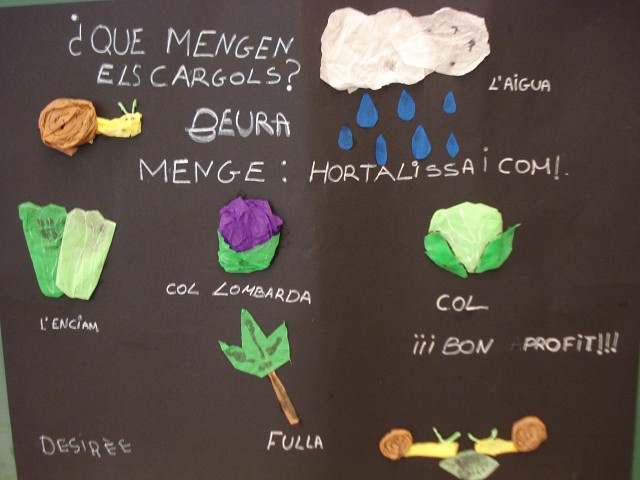 ¿QUE MENGEN
ELS CARGOLS?
L'AIGUA
BEURA
MENGE: HORTALISSA I COM!.
COL LOMBARDA
COL
L'ENCIAM
¡¡¡BON APROFIT!!!
FULLA
DESIRÈE